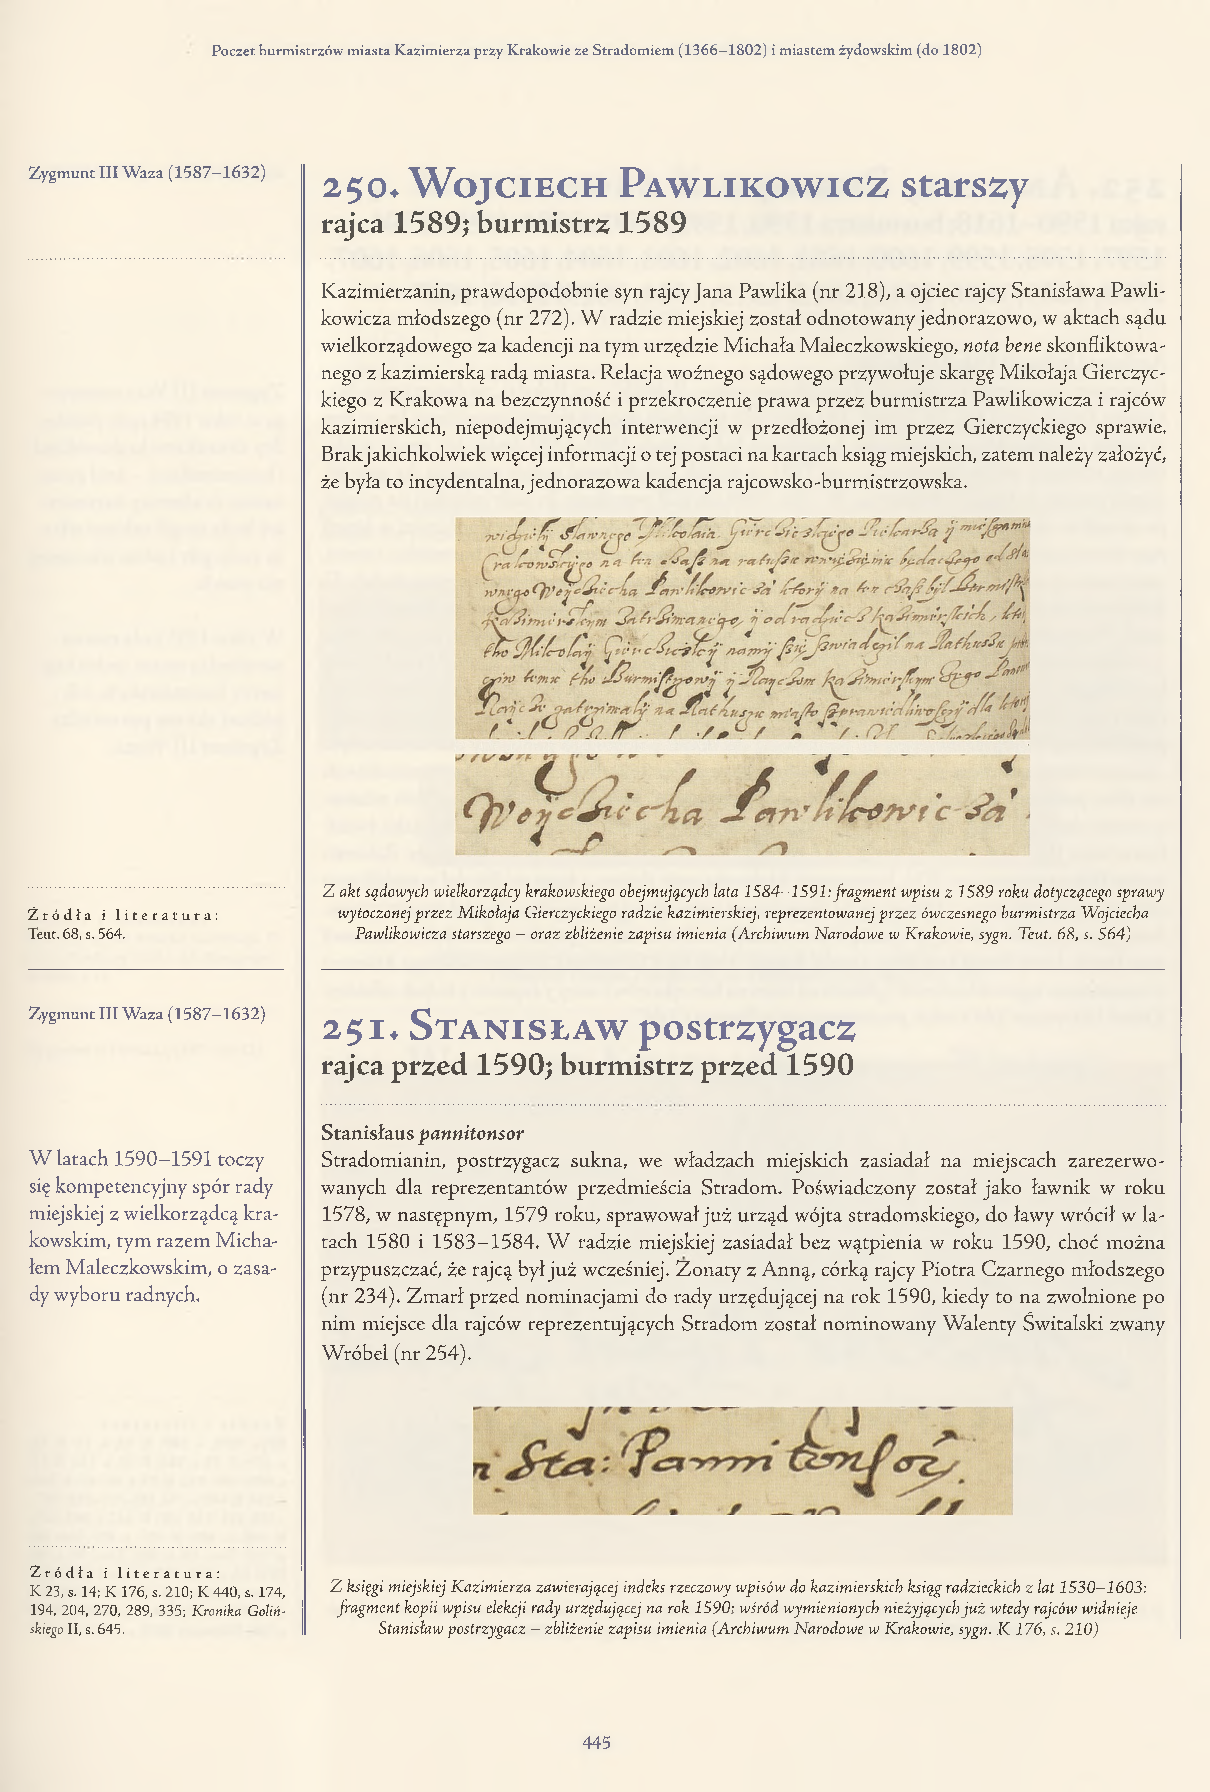 Poczet burmistrzów miasta Kazimierza przy Krakowie ze Stradomiem (1366–1802) i miastem żydowskim (do 1802)
Zygmunt III Waza (1587–1632)
250. Wojciech Pawlikowicz starszy
rajca 1589; burmistrz 1589
Kazimierzanin, prawdopodobnie syn rajcy Jana Pawlika (nr 218), a ojciec rajcy Stanisława Pawli-
kowicza młodszego (nr 272). W radzie miejskiej został odnotowany jednorazowo, w aktach sądu
wielkorządowego za kadencji na tym urzędzie Michała Maleczkowskiego, nota bene skonfliktowa-
nego z kazimierską radą miasta. Relacja woźnego sądowego przywołuje skargę Mikołaja Gierczyc-
kiego z Krakowa na bezczynność i przekroczenie prawa przez burmistrza Pawlikowicza i rajców
kazimierskich, niepodejmujących interwencji w przedłożonej im przez Gierczyckiego sprawie.
Brak jakichkolwiek więcej informacji o tej postaci na kartach ksiąg miejskich, zatem należy założyć,
że była to incydentalna, jednorazowa kadencja rajcowsko-burmistrzowska.
Woÿciecha Pawlikowicza
Z akt sądowych wielkorządcy krakowskiego obejmujących lata 1584–1591: fragment wpisu z 1589 roku dotyczącego sprawy
wytoczonej przez Mikołaja Gierczyckiego radzie kazimierskiej, reprezentowanej przez ówczesnego burmistrza Wojciecha
Pawlikowicza starszego – oraz zbliżenie zapisu imienia (Archiwum Narodowe w Krakowie, sygn. Teut. 68, s. 564)
Źródła i literatura:
Teut. 68, s. 564.
Zygmunt III Waza (1587–1632)
251. Stanisław postrzygacz
rajca przed 1590; burmistrz przed 1590
W latach 1590–1591 toczy
się kompetencyjny spór rady
miejskiej z wielkorządcą kra-
kowskim, tym razem Micha-
łem Maleczkowskim, o zasa-
dy wyboru radnych.
Stanisłaus pannitonsor
Stradomianin, postrzygacz sukna, we władzach miejskich zasiadał na miejscach zarezerwo-
wanych dla reprezentantów przedmieścia Stradom. Poświadczony został jako ławnik w roku
1578, w następnym, 1579 roku, sprawował już urząd wójta stradomskiego, do ławy wrócił w la-
tach 1580 i 1583–1584. W radzie miejskiej zasiadał bez wątpienia w roku 1590, choć można
przypuszczać, że rajcą był już wcześniej. Żonaty z Anną, córką rajcy Piotra Czarnego młodszego
(nr 234). Zmarł przed nominacjami do rady urzędującej na rok 1590, kiedy to na zwolnione po
nim miejsce dla rajców reprezentujących Stradom został nominowany Walenty Świtalski zwany
Wróbel (nr 254).
Sta: Pannitonsory
Z księgi miejskiej Kazimierza zawierającej indeks rzeczowy wpisów do kazimierskich ksiąg radzieckich z lat 1530–1603:
fragment kopii wpisu elekcji rady urzędującej na rok 1590; wśród wymienionych nieżyjących już wtedy rajców widnieje
Stanisław postrzygacz – zbliżenie zapisu imienia (Archiwum Narodowe w Krakowie, sygn. K 176, s. 210)
Źródła i literatura:
K 23, s. 14; K 176, s. 210; K 440, s. 174,
194, 204, 270, 289, 335; Kronika Goliń-
skiego II, s. 645.
445